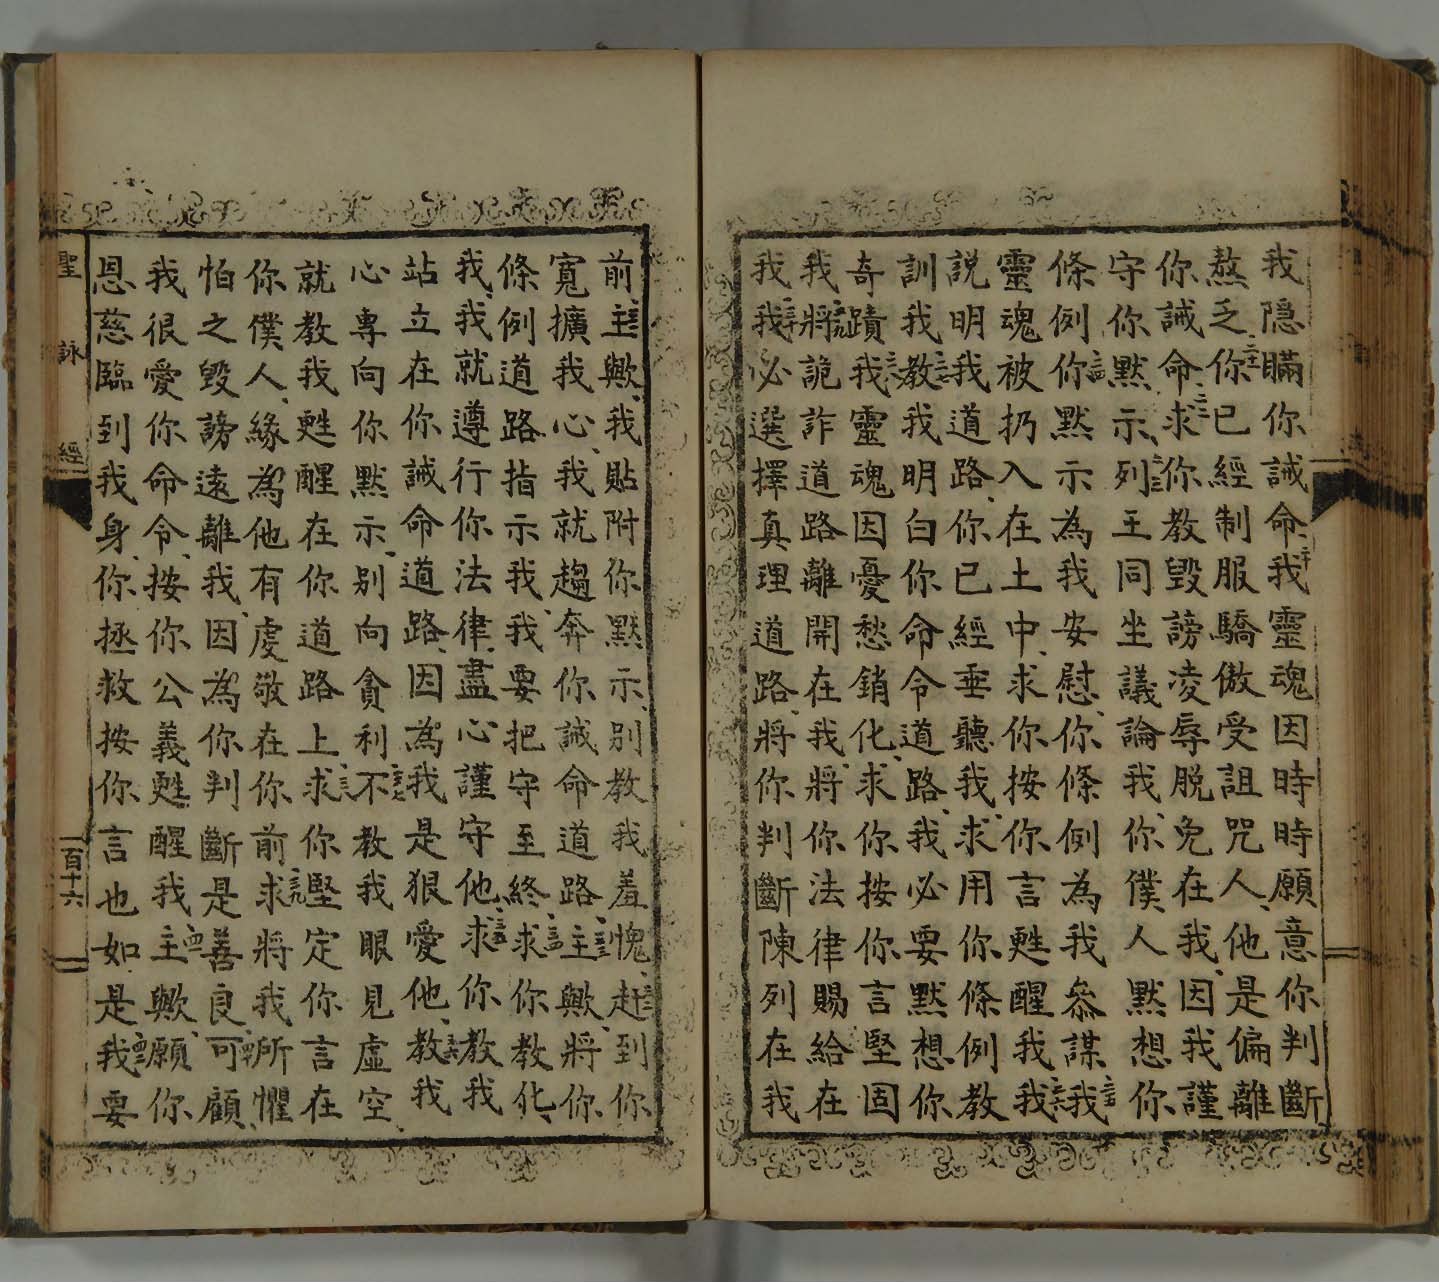 我隐瞞你誡命二十我靈魂因時時願意你判斷
熬乏二十一你已經制服驕傲受詛咒人他是偏離
你誡命二十二求你教毀謗凌辱脫免在我因我謹
守你默示二十三列王同坐議論我你僕人默想你
條例二十四你默示為我安慰你條例為我叅謀二十五我
靈魂被扔入在土中求你按你言甦醒我二十六我
説明我道路你已經垂聽我求用你條例教
訓我二十七教我明白你命令道路我必要默想你
奇蹟二十八我靈魂因憂愁銷化求你按你言堅固
我二十九將詭詐道路離開在我將你法律賜給在
我三十我必選擇真理道路將你判斷陳列在我
前三十一主歟我貼附你默示别教我羞愧三十二赶到你
寬擴我心我就趨奔你誡命道路三十三主歟將你
條例道路指示我我要把守至終三十四求你教化
我我就遵行你法律盡心謹守他三十五求你教我
站立在你誡命道路因為我是狠愛他三十六教我
心專向你默示别向貪利三十七不教我眼見虛空
就教我甦醒在你道路上三十八求你堅定你言在
你僕人緣為他有虔敬在你前三十九求將我所懼
怕之毀謗遠離我因為你判斷是善良四十可顧
我很愛你命令按你公義甦醒我四十一主歟願你
恩慈臨到我身你拯救按你言也如是四十二我要
聖詠經
一百十六